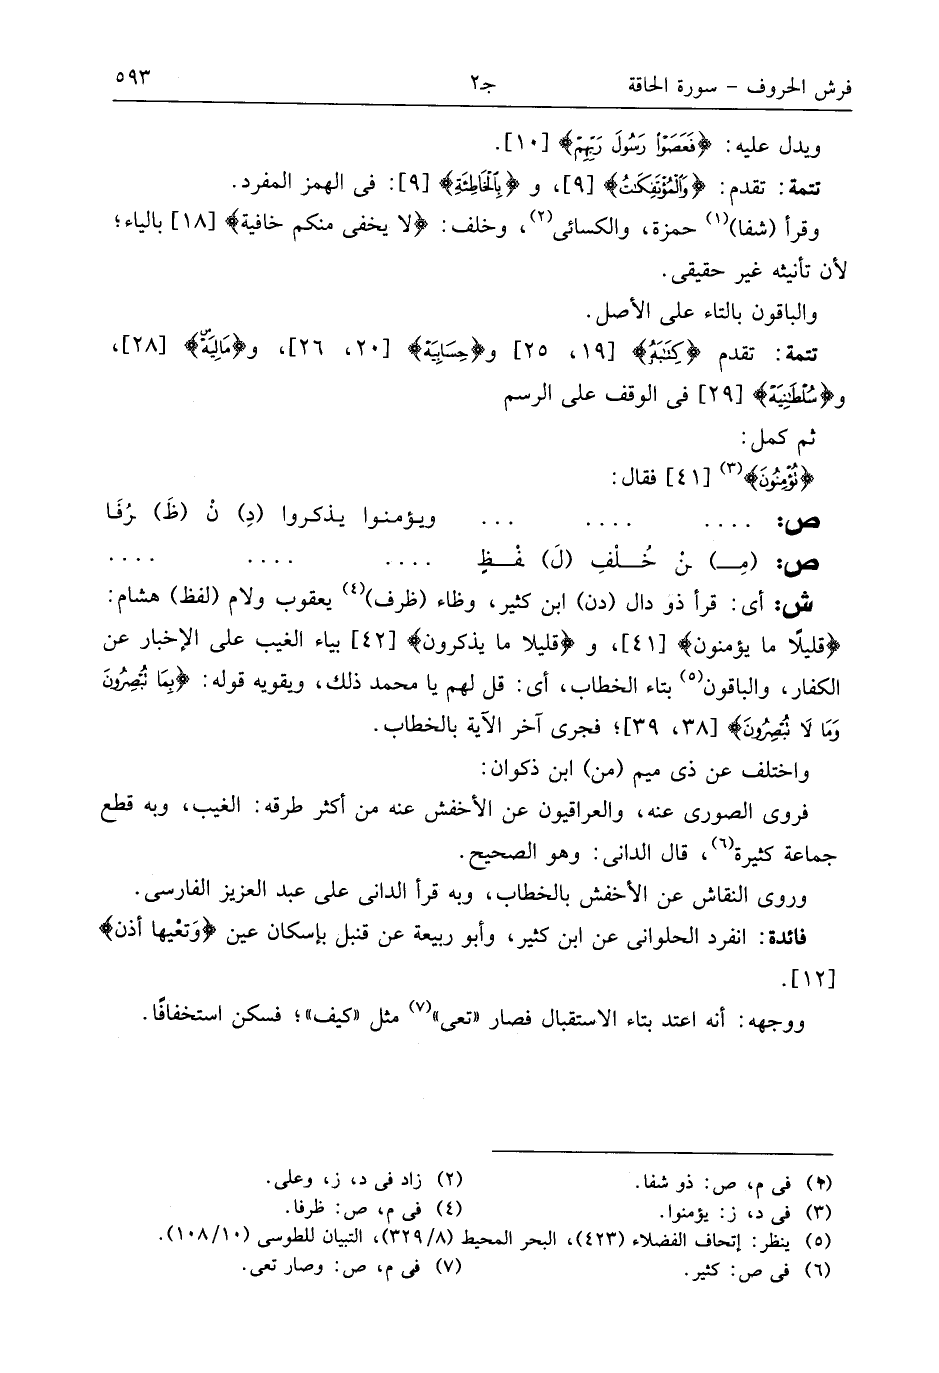 فرش الحروف – سورة الحاقة جـ٢ ٥٩٣
ويدل عليه: ﴿فَعَصَوْا رَسُولَ رَبِّهِمْ﴾ [١٠].
تتمة: تقدم: ﴿وَٱلْمُؤْتَفِكَٰتُ﴾ [٩]، و ﴿بِٱلْخَاطِئَةِ﴾ [٩]: فى الهمز المفرد.
وقرأ (شفا)(١) حمزة، والكسائى(٢)، وخلف: ﴿لا يخفى منكم خافية﴾ [١٨] بالياء؛
لأن تأنيثه غير حقيقى.
والباقون بالتاء على الأصل.
تتمة: تقدم ﴿كِتَٰبِيَهْ﴾ [١٩، ٢٥] و﴿حِسَابِيَهْ﴾ [٢٠، ٢٦]، و﴿مَالِيَهْۜ﴾ [٢٨]،
و﴿سُلْطَٰنِيَهْ﴾ [٢٩] فى الوقف على الرسم
ثم كمل:
﴿تُؤْمِنُونَ﴾(٣) [٤١] فقال:
ص: .... .... ... ويؤمنوا يذكروا (دِ) نْ (ظَ) رُفَا
ص: (مِـ) نْ خُـلْفِ (لَ) فْـظٍ .... .... ....
ش: أى: قرأ ذو دال (دن) ابن كثير، وظاء (ظرف)(٤) يعقوب ولام (لفظ) هشام:
﴿قليلًا ما يؤمنون﴾ [٤١]، و ﴿قليلا ما يذكرون﴾ [٤٢] بياء الغيب على الإخبار عن
الكفار، والباقون(٥) بتاء الخطاب، أى: قل لهم يا محمد ذلك، ويقويه قوله: ﴿بِمَا تُبْصِرُونَ
وَمَا لَا تُبْصِرُونَ﴾ [٣٨، ٣٩]؛ فجرى آخر الآية بالخطاب.
واختلف عن ذى ميم (من) ابن ذكوان:
فروى الصورى عنه، والعراقيون عن الأخفش عنه من أكثر طرقه: الغيب، وبه قطع
جماعة كثيرة(٦)، قال الدانى: وهو الصحيح.
وروى النقاش عن الأخفش بالخطاب، وبه قرأ الدانى على عبد العزيز الفارسى.
فائدة: انفرد الحلوانى عن ابن كثير، وأبو ربيعة عن قنبل بإسكان عين ﴿وَتعْيها أذن﴾
[١٢].
ووجهه: أنه اعتد بتاء الاستقبال فصار «تعى»(٧) مثل «كيف»؛ فسكن استخفافًا.
(١) فى م، ص: ذو شفا. (٢) زاد فى د، ز، وعلى.
(٣) فى د، ز: يؤمنوا. (٤) فى م، ص: ظرفا.
(٥) ينظر: إتحاف الفضلاء (٤٢٣)، البحر المحيط (٣٢٩/٨)، التبيان للطوسى (١٠٨/١٠).
(٦) فى ص: كثير. (٧) فى م، ص: وصار تعى.